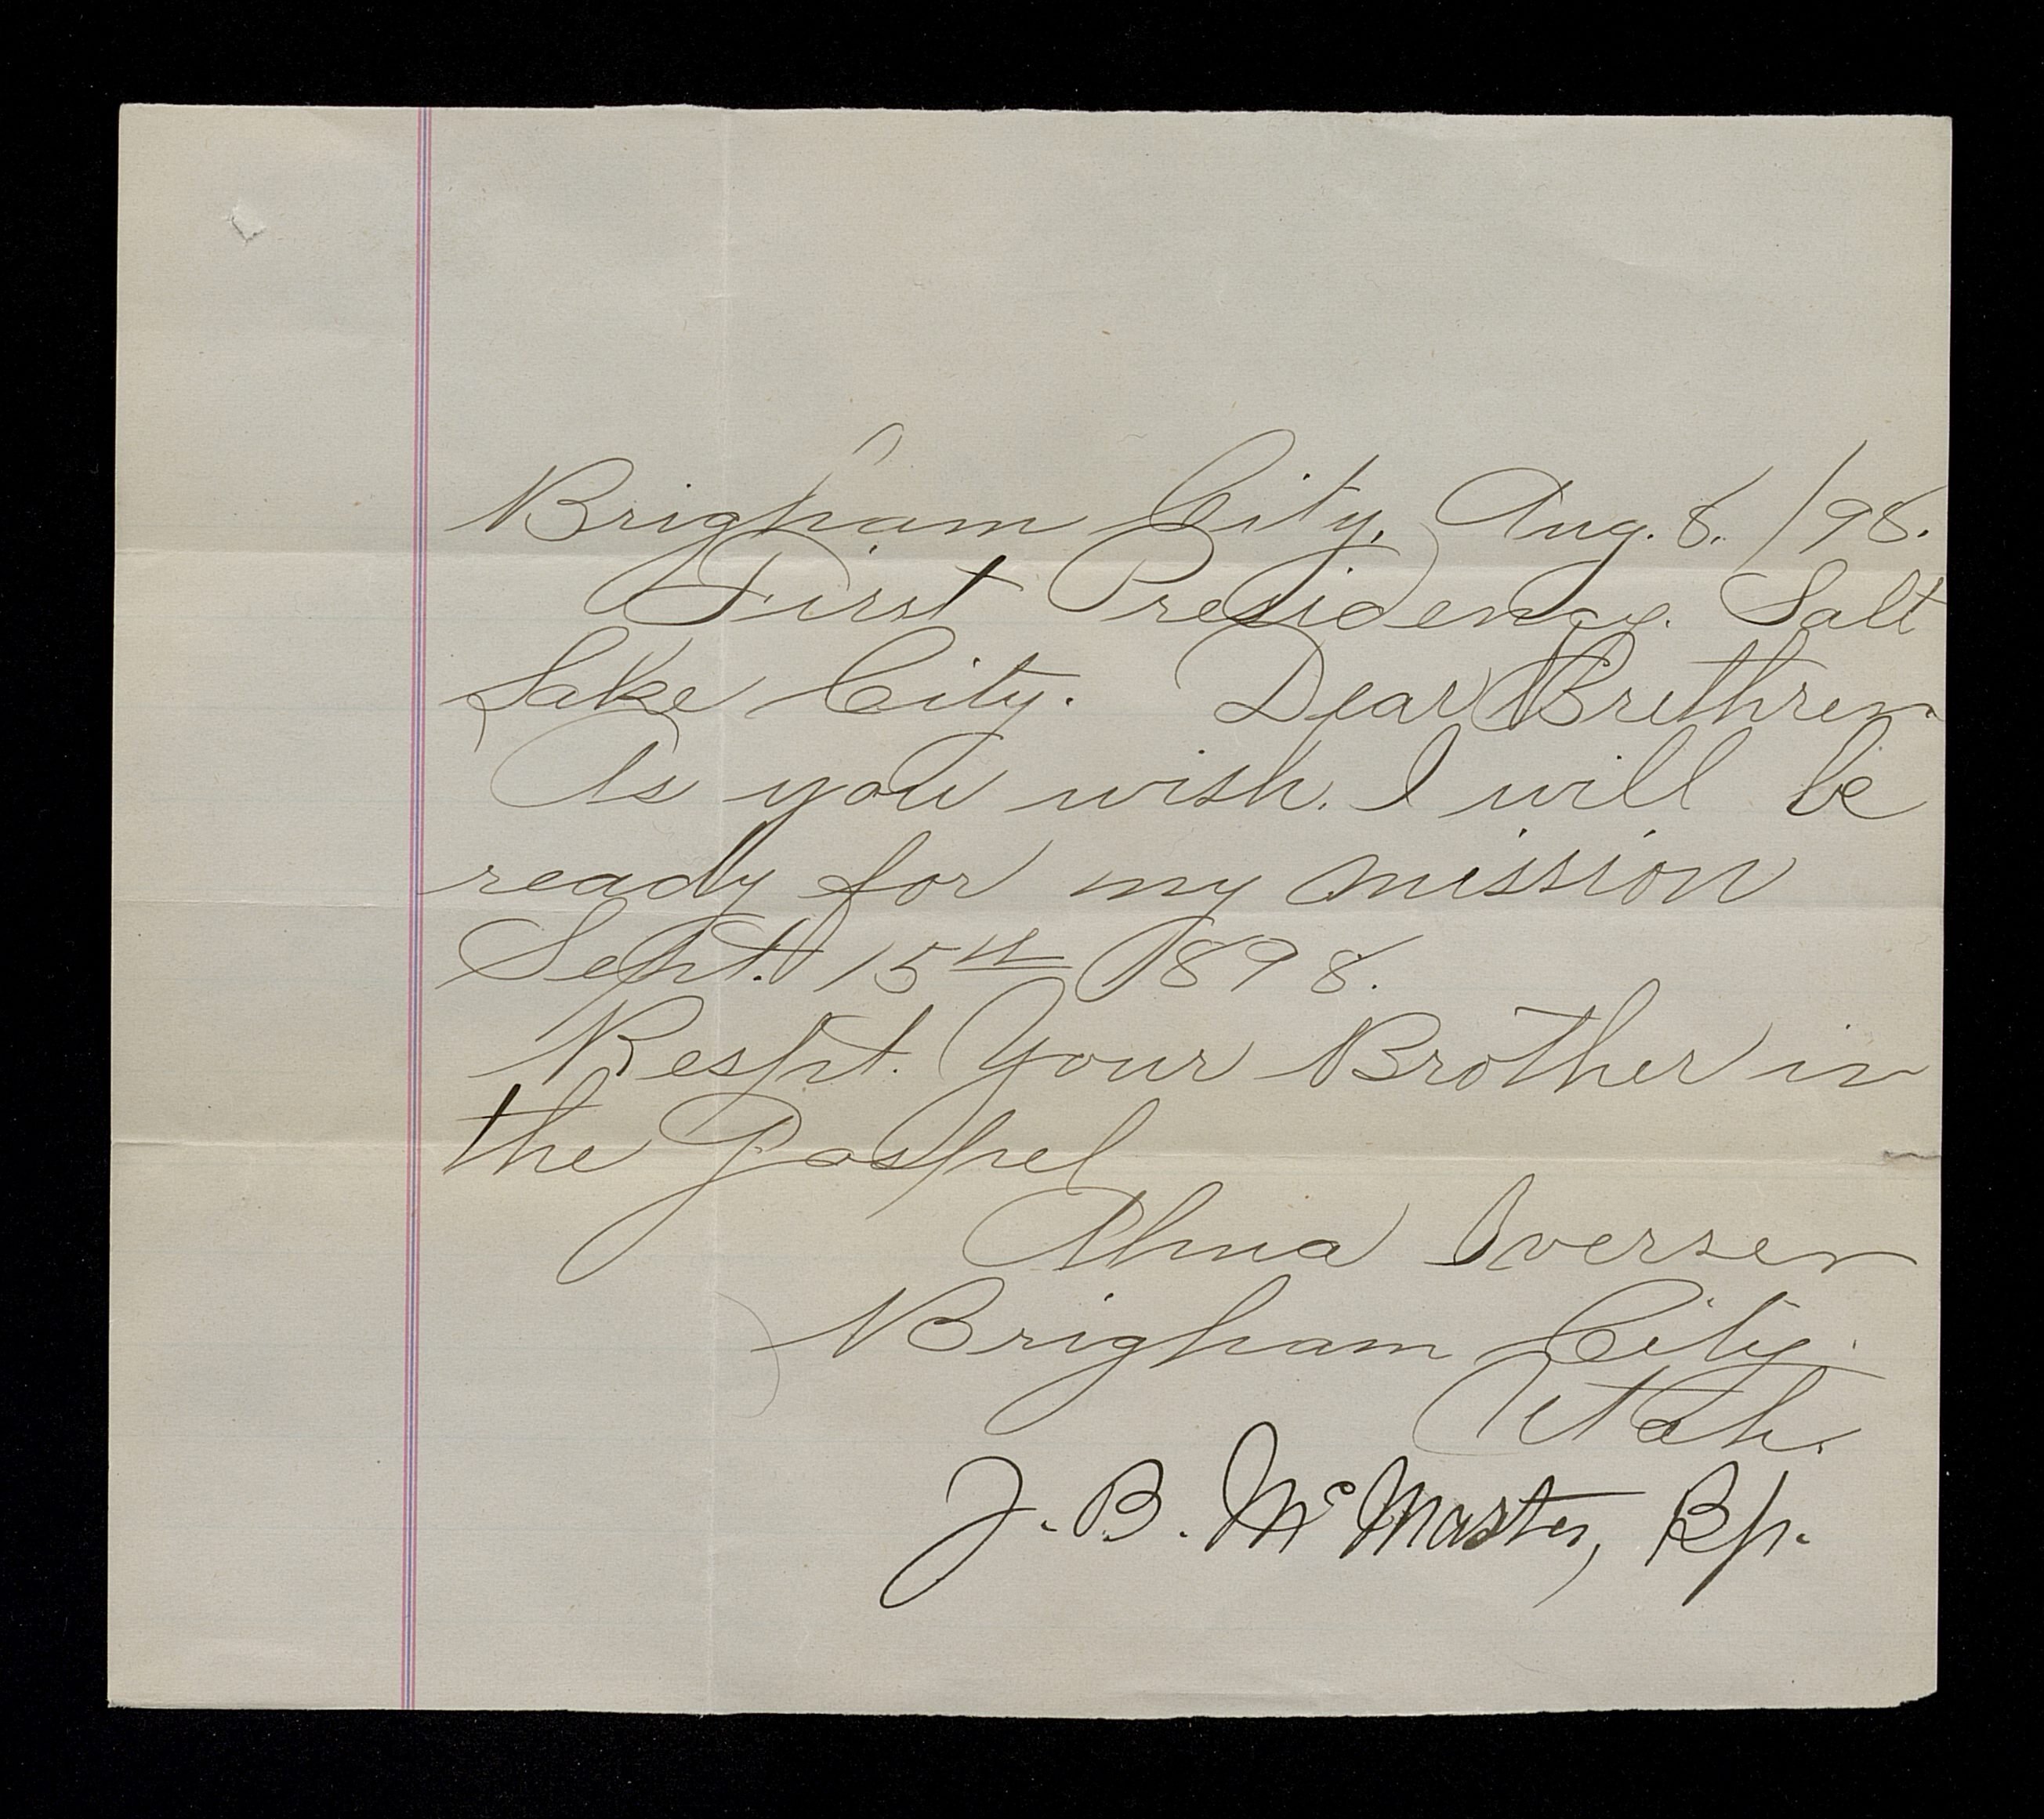 Brigham City, Aug. 8. /98.
First Presidency. Salt
Lake City. Dear Brethren
As you wish. I will be
ready for my mission
Sept. 15th 1898.
Respt. Your Brother in
the Gospel
Alma Iversen
Brigham City.
Utah.
J. B. McMaster, Bp.